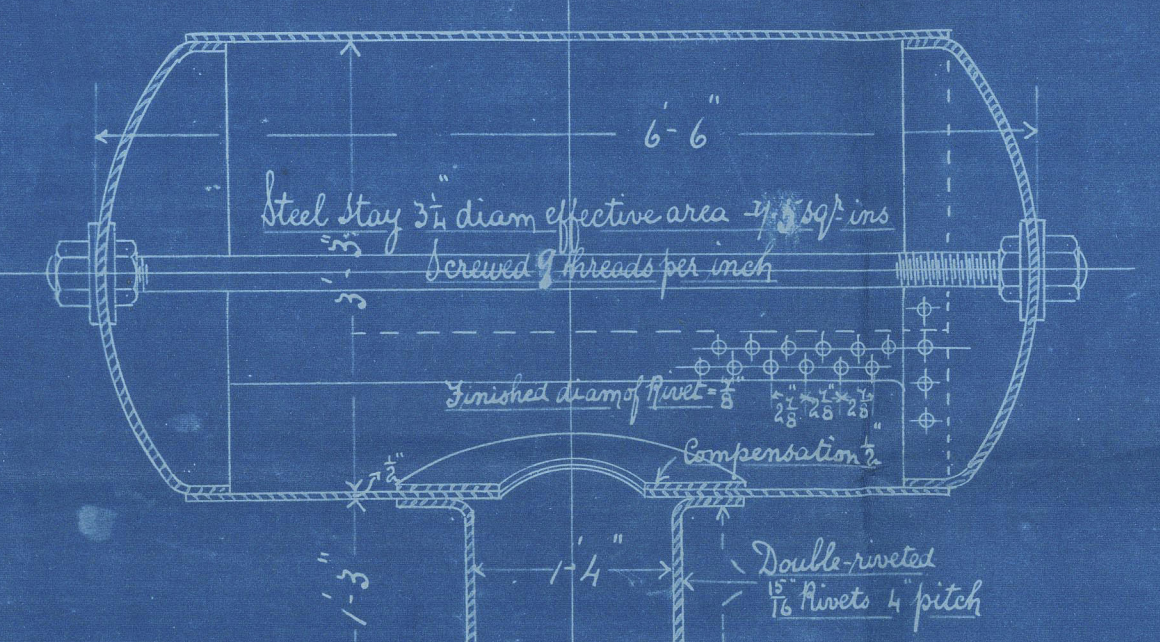 6'-6"
Steel Stay 3¼" diam effective area sqr ins
Screwed 9 threads per inch
3'-3"
Finished diam of Rivet = 7/8"
2 7/8" 2 7/8" 2 7/8
Compensation ½"
½"
1'-3"
1'-4"
Double-riveted
15/16" Rivets 4" pitch